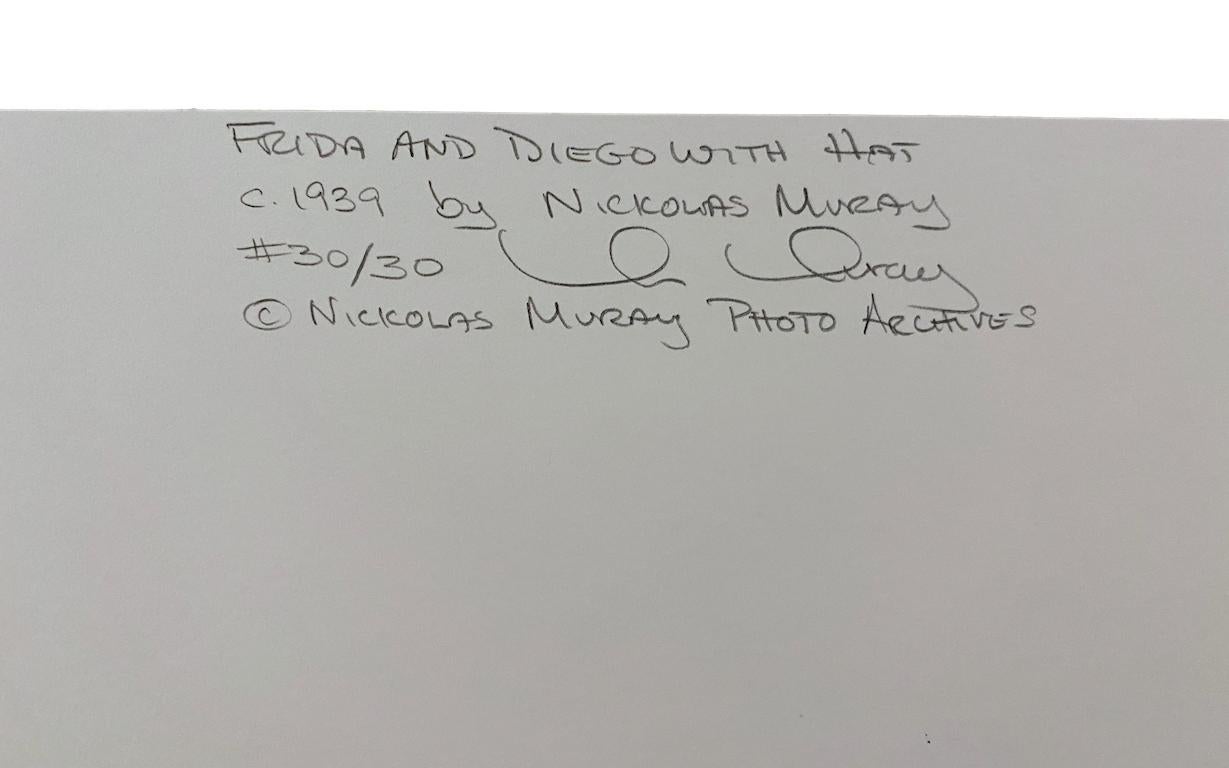 FRIDA AND DIEGO WITH HAT
c. 1939 by NICKOLAS MURAY
#30/30
© NICKOLAS MURAY PHOTO ARCHIVES